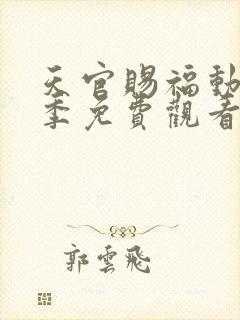 天官賜福動
季免費觀看
郭雲飛